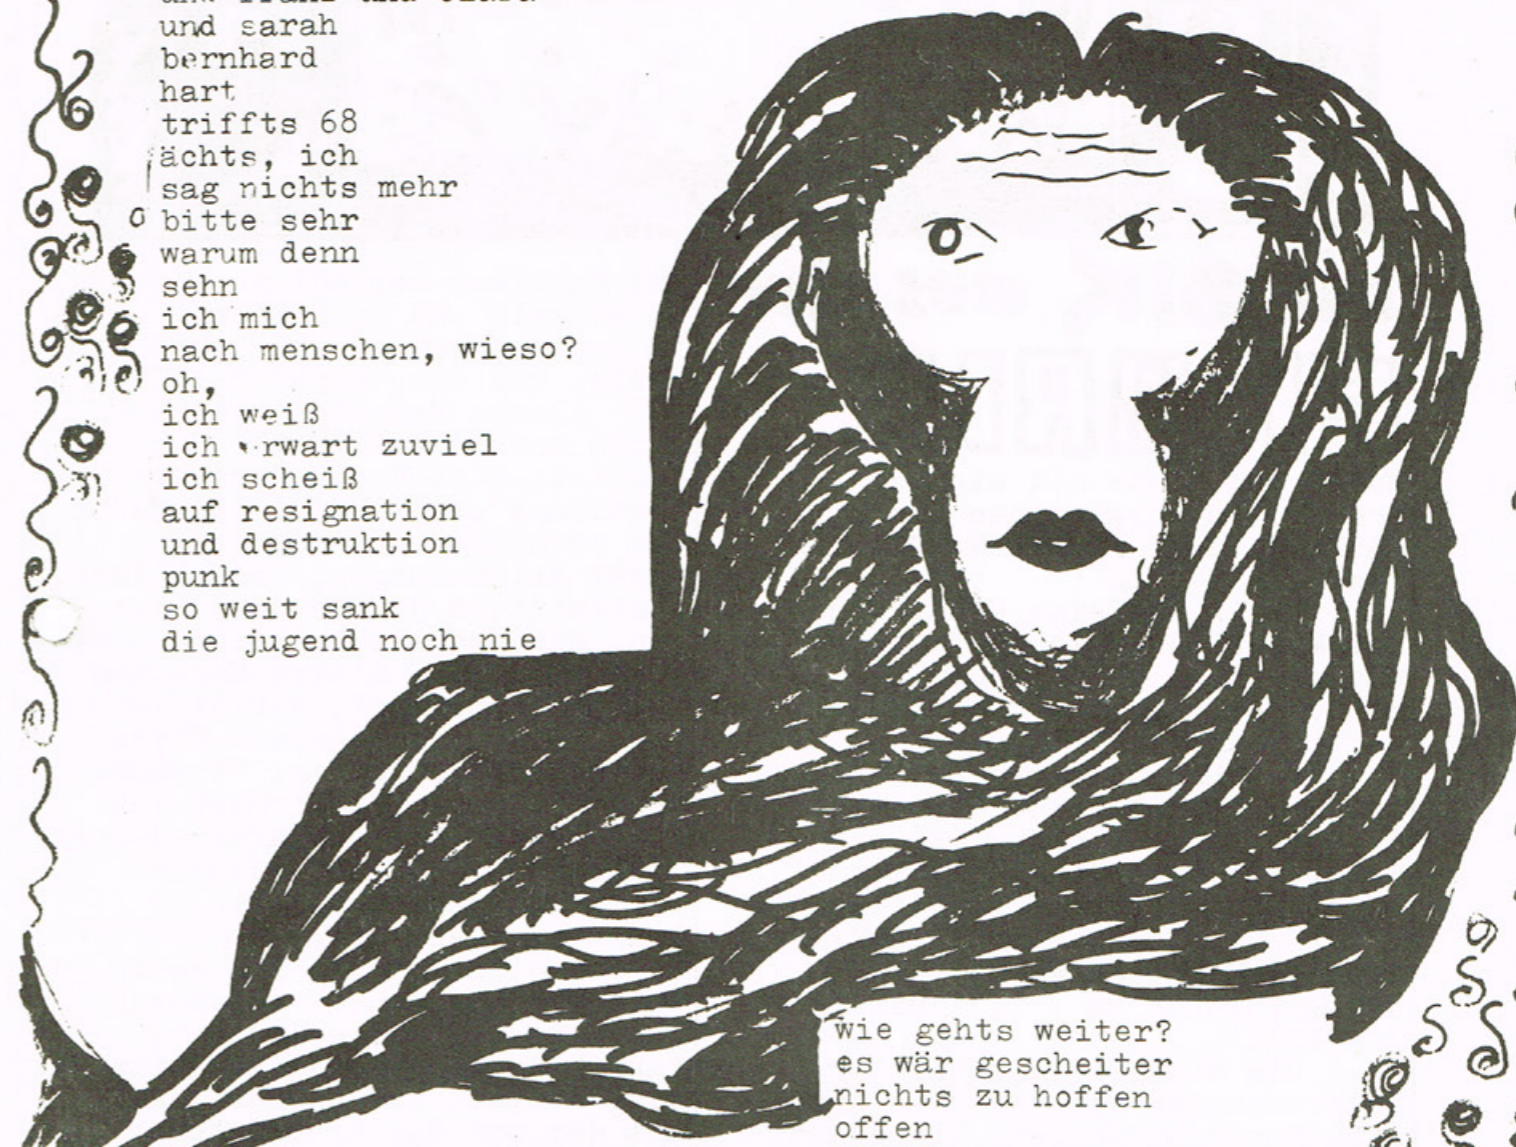 und sarah
bernhard
hart
triffts 68
ächts, ich
sag nichts mehr
bitte sehr
warum denn
sehn
ich mich
nach menschen, wieso?
oh,
ich weiß
ich rwart zuviel
ich scheiß
auf resignation
und destruktion
punk
so weit sank
die jugend noch nie
wie gehts weiter?
es wär gescheiter
nichts zu hoffen
offen